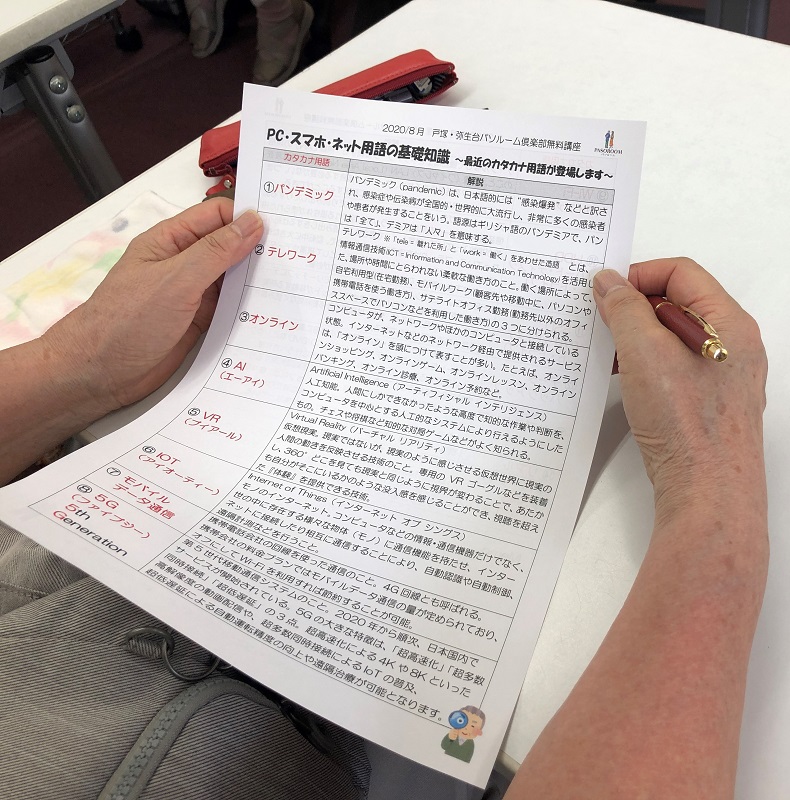 2020/8月 戸塚・弥生台パソルーム倶楽部無料講座
PASOROOM
PC・スマホ・ネット用語の基礎知識 ～最近のカタカナ用語が登場します～
カタカナ用語
解説
①パンデミック
パンデミック（pandemic）は、日本語的には“感染爆発”などと訳さ
れ、感染症や伝染病が全国的・世界的に大流行し、非常に多くの感染者
や患者が発生することをいう。語源はギリシャ語のパンデミアで、パン
は「全て」、デミアは「人々」を意味する。
② テレワーク
テレワーク ※「tele = 離れた所」と「work = 働く」をあわせた造語 とは、
情報通信技術(ICT = Information and Communication Technology)を活用し
た、場所や時間にとらわれない柔軟な働き方のこと。働く場所によって、
自宅利用型(在宅勤務)、モバイルワーク(顧客先や移動中に、パソコンや
携帯電話を使う働き方)、サテライトオフィス勤務(勤務先以外のオフィ
ススペースでパソコンなどを利用した働き方)の３つに分けられる。
③オンライン
コンピュータが、ネットワークやほかのコンピュータと接続している
状態。インターネットなどのネットワーク経由で提供されるサービス
は、「オンライン」を頭につけて表すことが多い。たとえば、オンライ
ンショッピング、オンラインゲーム、オンラインレッスン、オンライン
バンキング、オンライン診療、オンライン予約など。
④ AI
（エーアイ）
Artificial Intelligence（アーティフィシャル インテリジェンス）
人工知能。人間にしかできなかったような高度で知的な作業や判断を、
コンピュータを中心とする人工的なシステムにより行えるようにした
もの。チェスや将棋など知的な対局ゲームなどがよく知られる。
⑤ VR
（ブイアール）
Virtual Reality（バーチャル リアリティ）
仮想現実。現実ではないが、現実のように感じさせる仮想世界に現実の
人間の動きを反映させる技術のこと。専用の VR ゴーグルなどを装着
し、360°どこを見ても現実と同じように視界が変わることで、あたか
も自分がそこにいるかのような没入感を感じることができ、視聴を超え
た『体験』を提供できる技術。
⑥ IOT
（アイオーティー）
Internet of Things（インターネット オブ シングス）
モノのインターネット。コンピュータなどの情報・通信機器だけでなく、
世の中に存在する様々な物体（モノ）に通信機能を持たせ、インター
ネットに接続したり相互に通信することにより、自動認識や自動制御、
遠隔計測などを行うこと。
⑦ モバイル
データ通信
携帯電話会社の回線を使った通信のこと。4G 回線とも呼ばれる。
携帯会社の料金プランではモバイルデータ通信の量が定められており、
オフにして Wi-Fi を利用すれば節約することが可能。
⑧ 5G
（ファイブジー）
5th
Generation
第 5 世代移動通信システムのこと。2020 年から順次、日本国内で
サービスが開始されている。5G の大きな特徴は、「超高速化」「超多数
同時接続」「超低遅延」の 3 点。超高速化による 4K や 8K といった
高解像度の動画配信や、超多数同時接続による IoT の普及、
超低遅延による自動運転精度の向上や遠隔治療が可能となります。